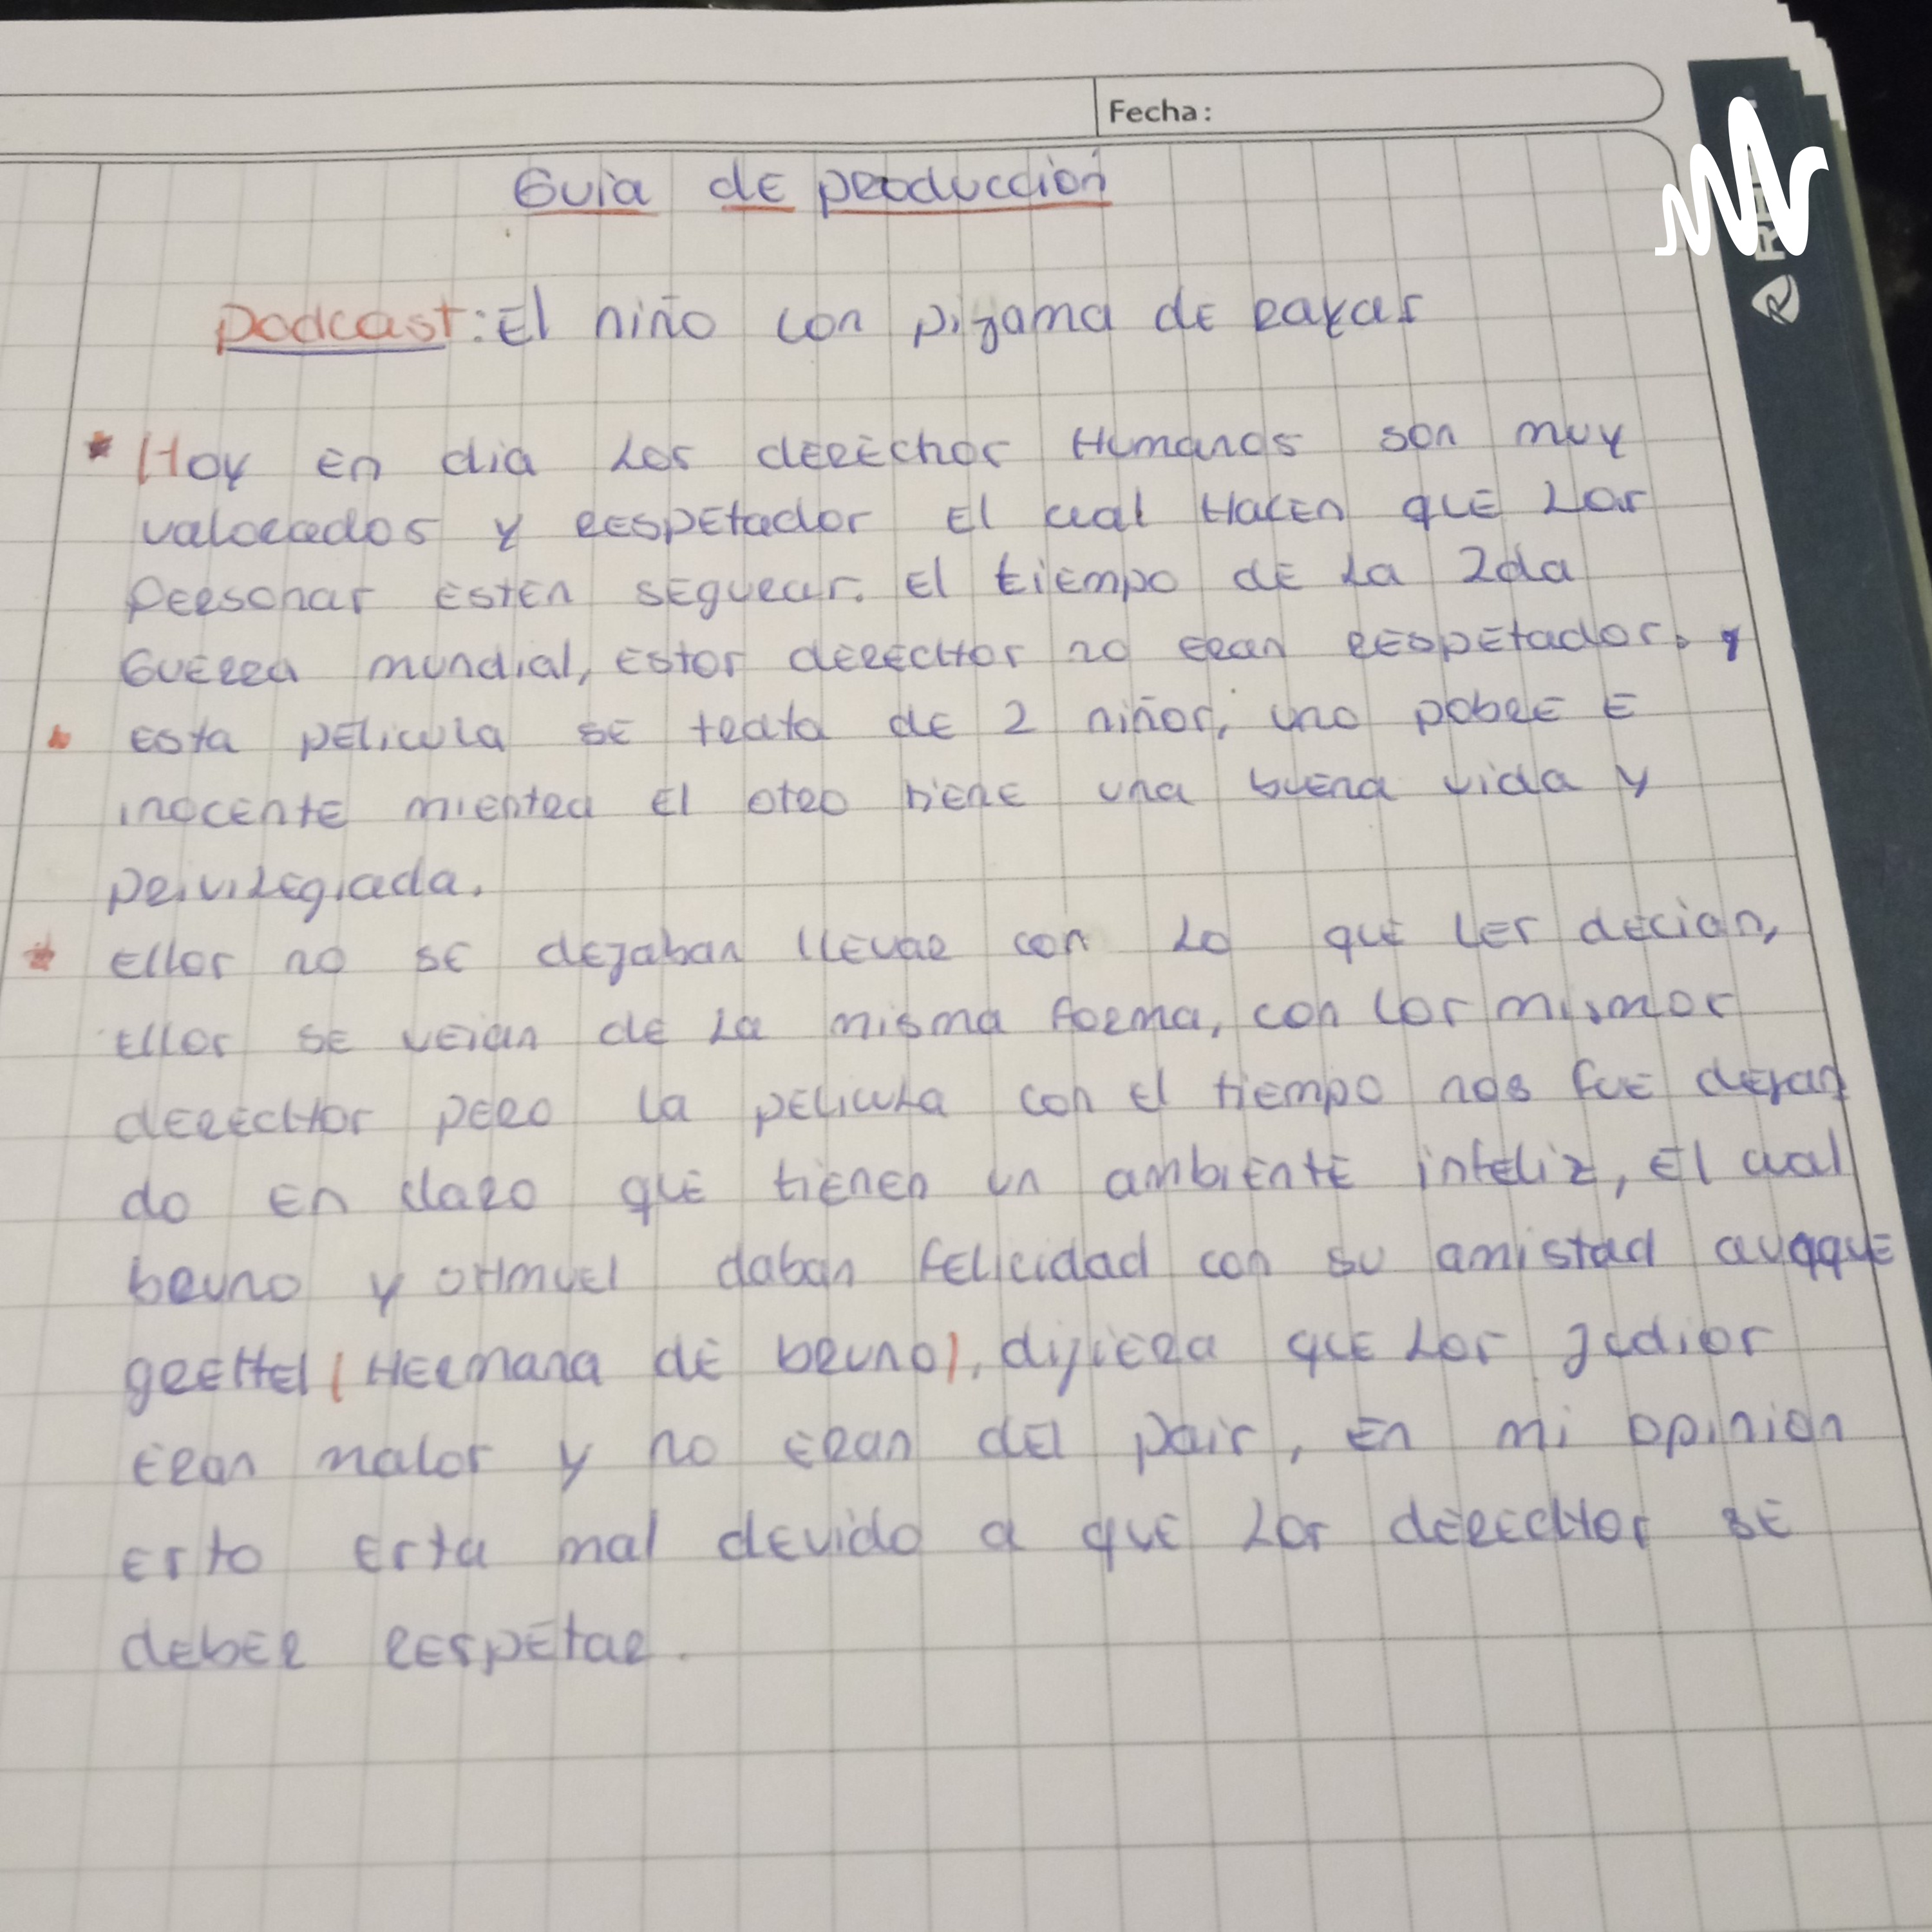 Fecha:
Guia de produccion
podcast: El niño con pijama de rayas
* Hoy en dia los derechos Humanos son muy
valorados y respetados el cual Hacen que Los
Personas esten seguras. El tiempo de la 2da
Guerra mundial, estos derechos no eran respetados. y
* esta pelicula se trata de 2 niños, uno pobre e
inocente mientra el otro tiene una buena vida y
privilegiada.
* Ellos no se dejaban llevar con lo que les decian,
Ellos se veian de la misma forma, con los mismos
derechos pero la pelicula con el tiempo nos fue dejan
do en claro que tienen un ambiente infeliz, el cual
bruno y shmuel daban felicidad con su amistad aunque
grettel (Hermana de bruno), dijiera que los judios
eran malos y no eran del pais, en mi opinion
esto esta mal devido a que los derechos se
deber respetar.